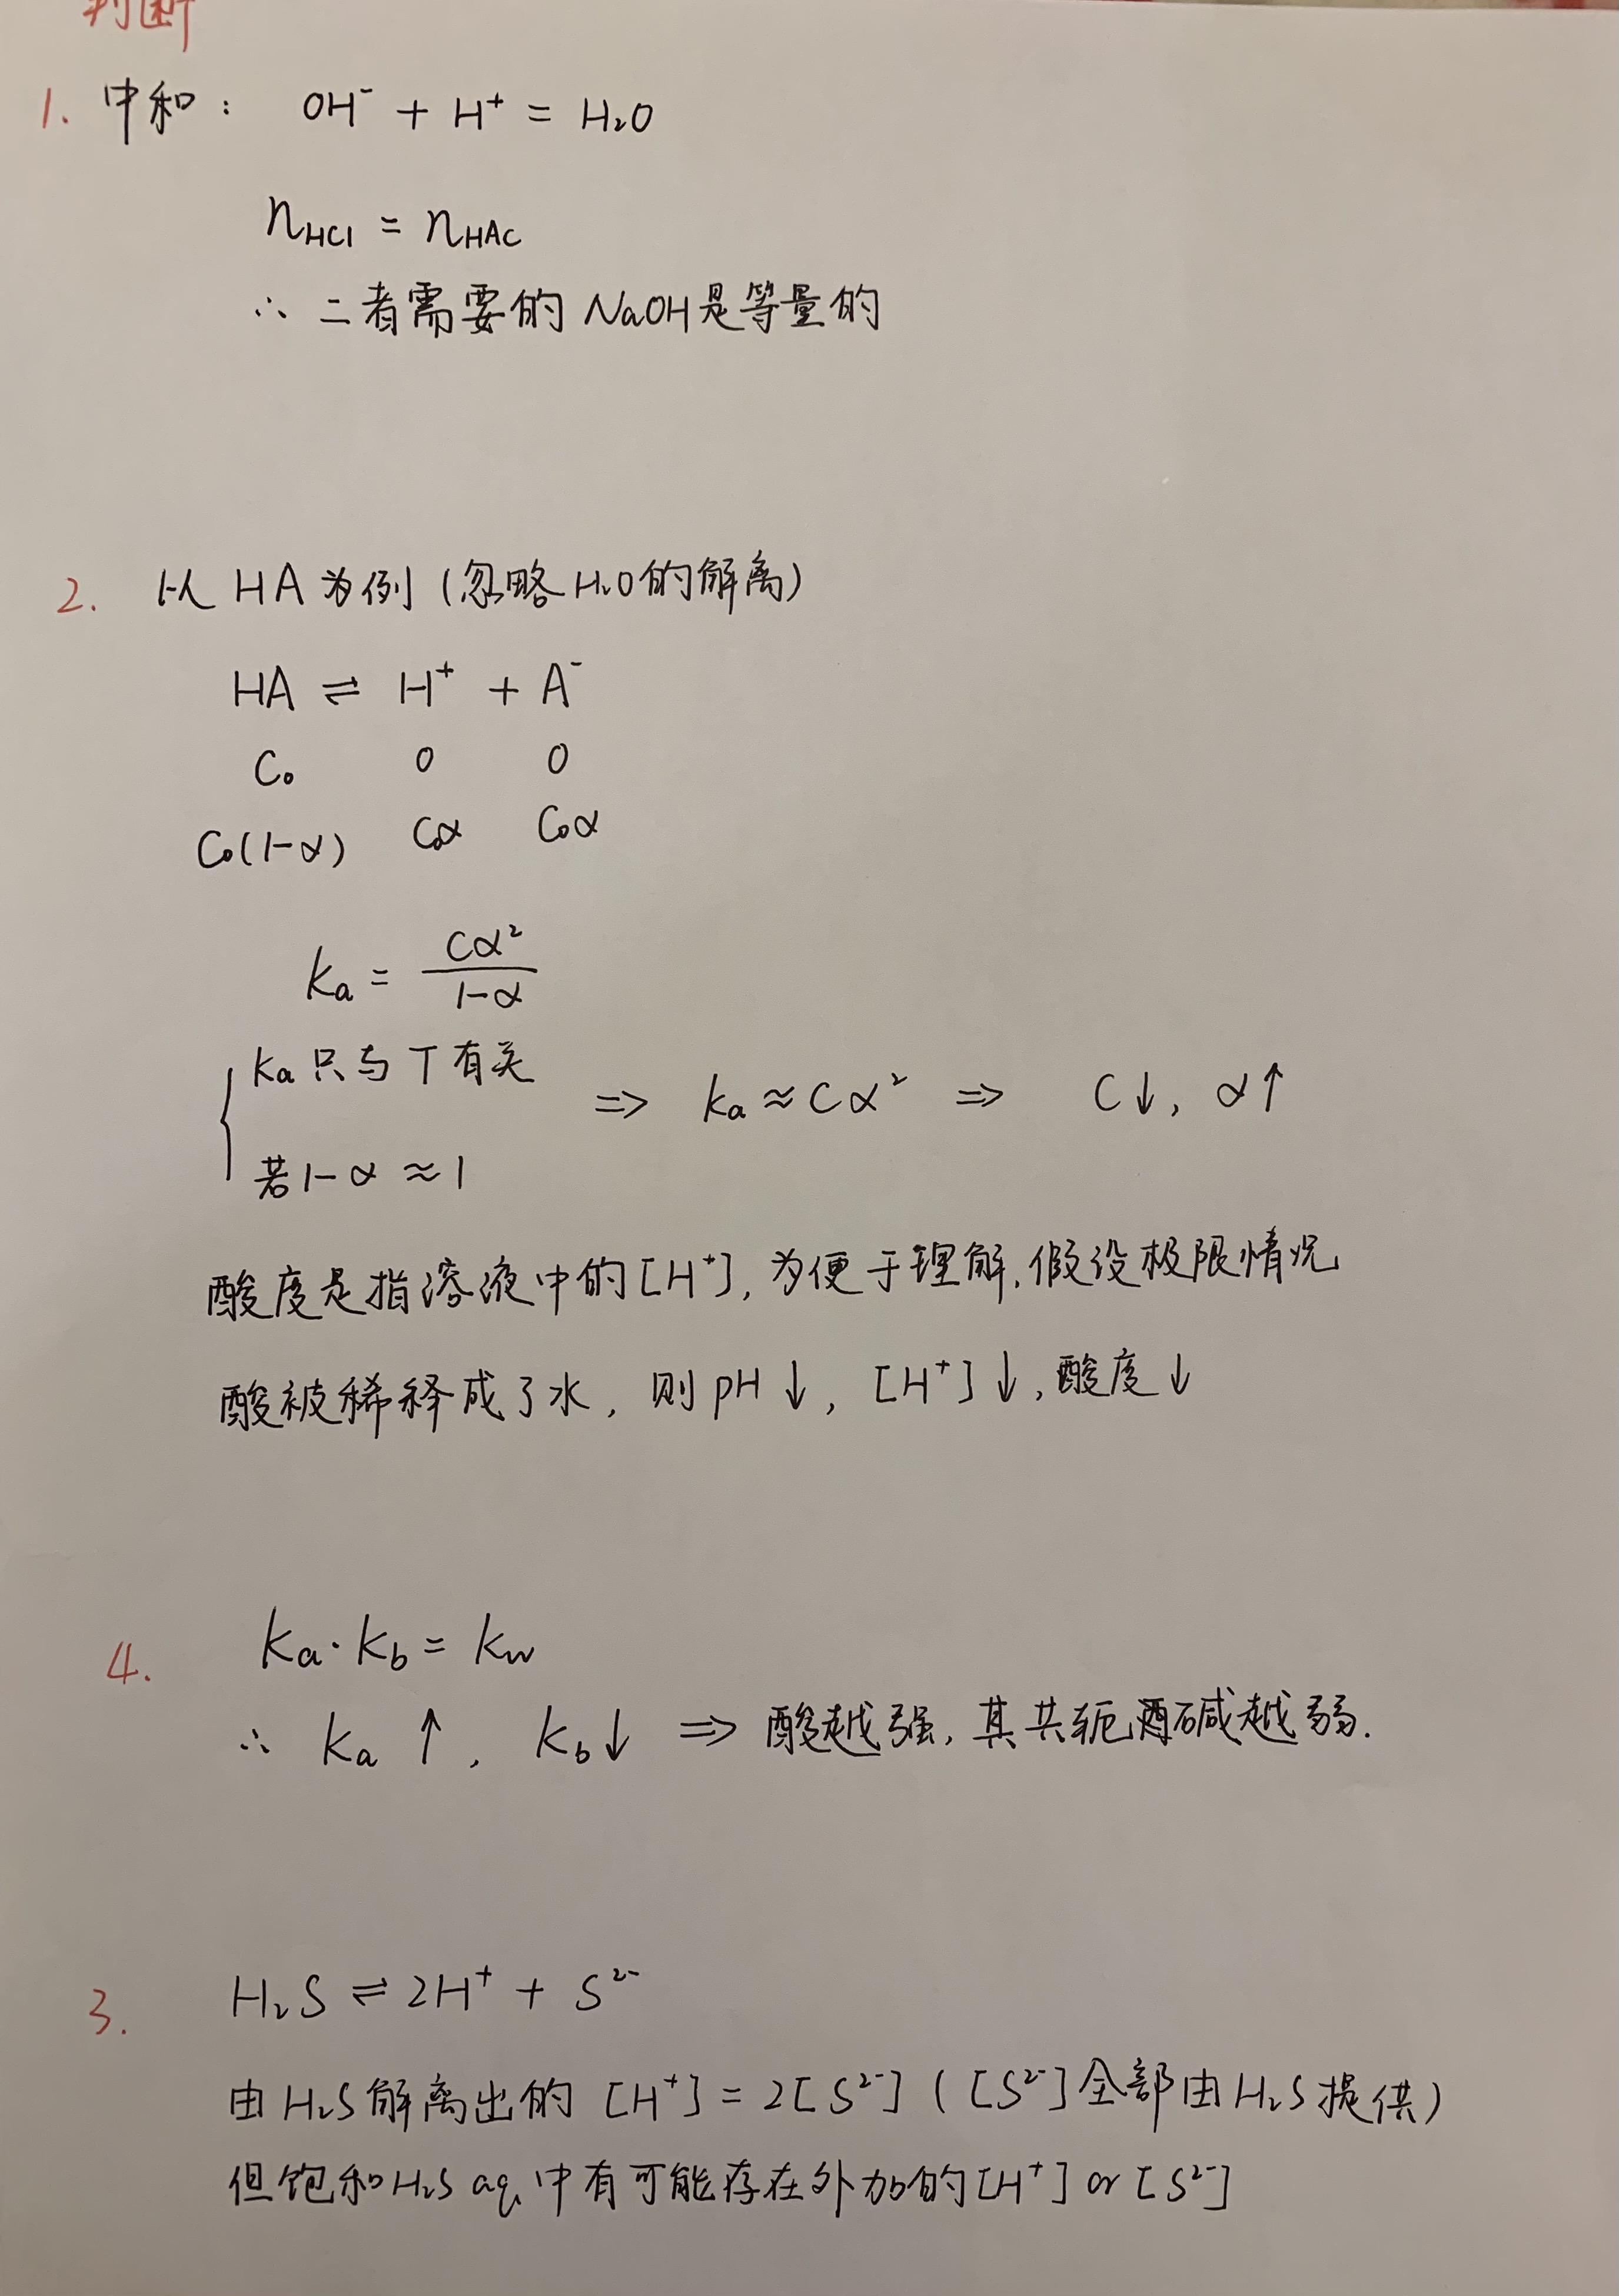 判断
1. 中和： OH⁻ + H⁺ = H₂O
n_HCl = n_HAc
∴ 二者需要的 NaOH是等量的
2. 以 HA 为例 (忽略H₂O的解离)
HA ⇌ H⁺ + A⁻
C₀ 0 0
C₀(1-α) C₀α C₀α
ka = Cα²/(1-α)
{ ka 只与 T 有关
若 1-α ≈ 1
⇒ ka ≈ Cα² ⇒ C↓, α↑
酸度是指溶液中的[H⁺], 为便于理解, 假设极限情况
酸被稀释成了水, 则 pH↓, [H⁺]↓, 酸度↓
4. ka·kb = kw
∴ ka ↑, kb↓ ⇒ 酸越强, 其共轭碱越弱.
3. H₂S ⇌ 2H⁺ + S²⁻
由H₂S解离出的 [H⁺] = 2[S²⁻] ([S²⁻]全部由H₂S提供)
但饱和H₂S aq. 中有可能存在外加的[H⁺] or [S²⁻]